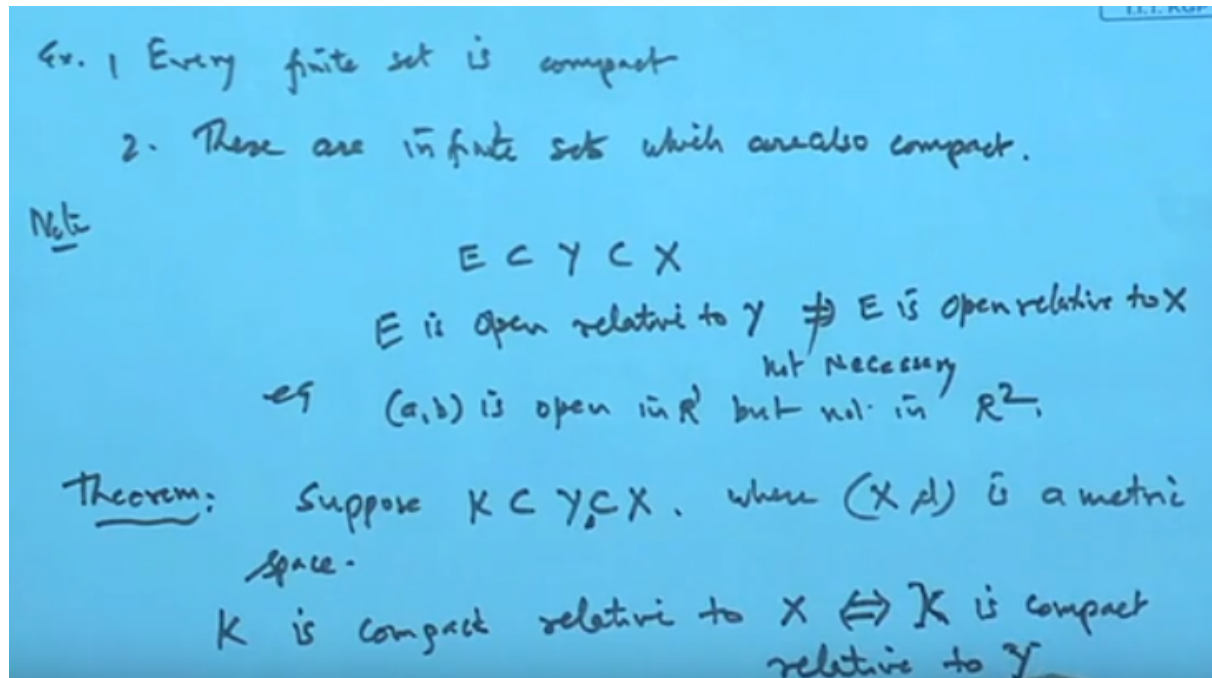 Ex. 1 Every finite set is compact
2. There are infinite sets which are also compact.
Note
E ⊂ Y ⊂ X
E is open relative to Y ⇏ E is open relative to X
not necessary
eg (a,b) is open in R¹ but not in R².
Theorem: Suppose K ⊂ Y ⊂ X. where (X,d) is a metric
space.
K is compact relative to X ⇔ K is compact
relative to Y